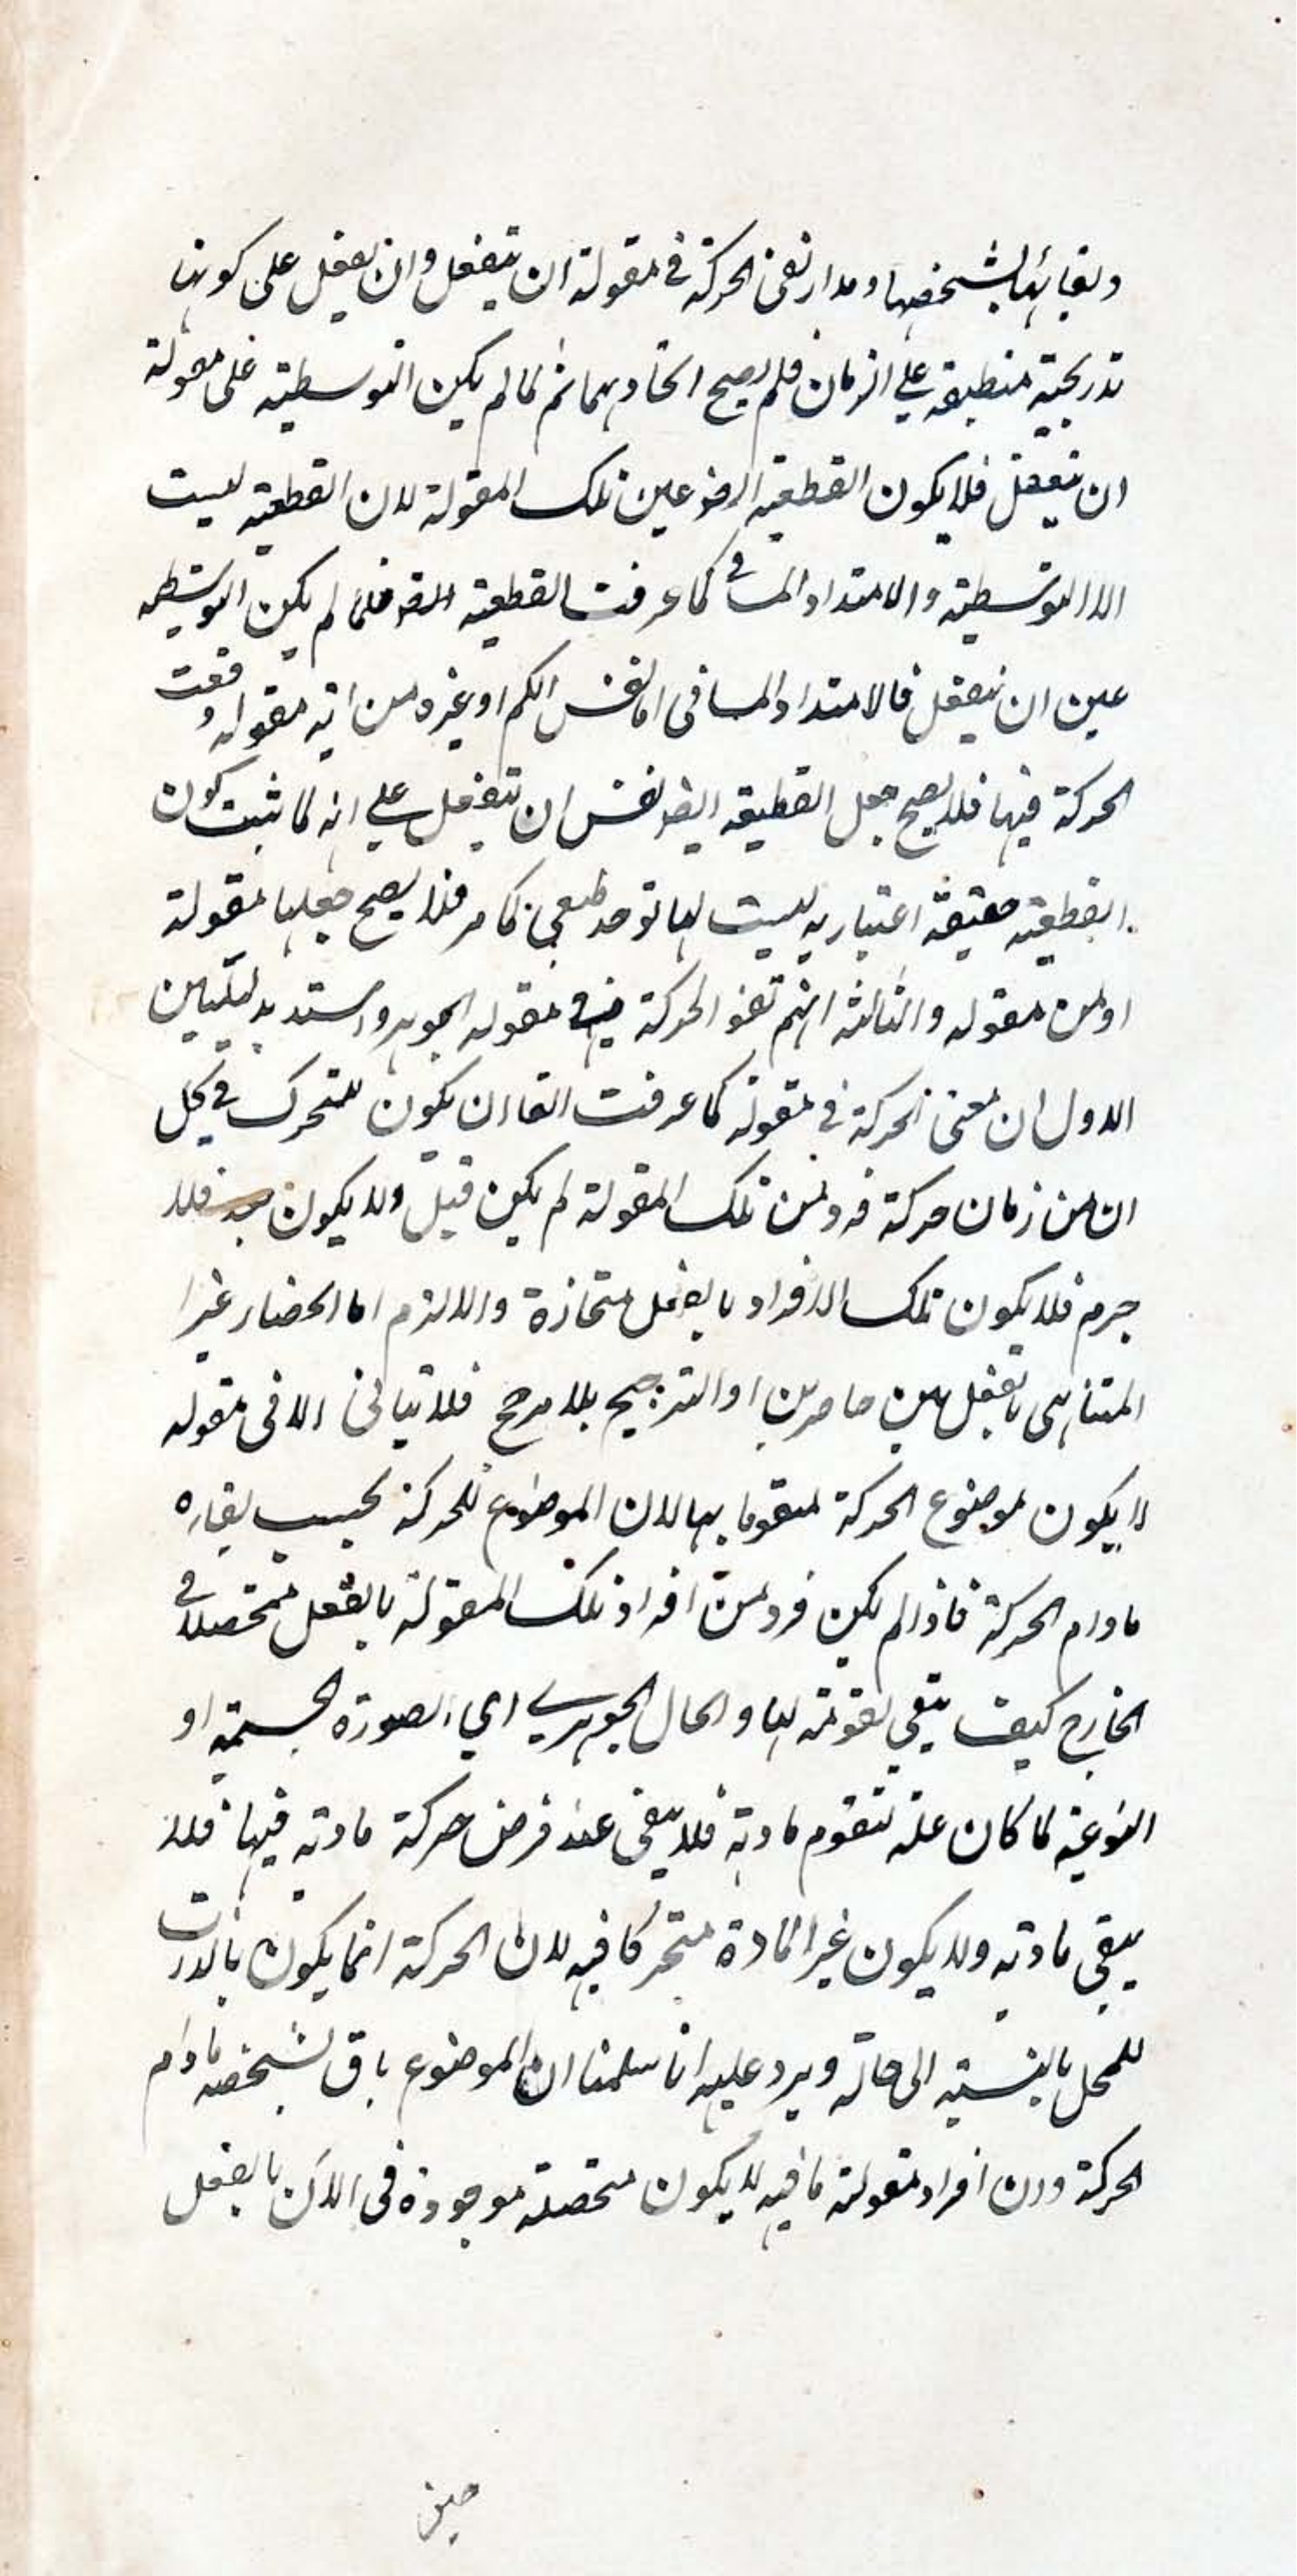 وبقائها بشخصها ومدار نفى الحركة فى مقولة ان ينفعل وان يفعل على كونها
تدريجية منطبقة على الزمان فلم يصح اتحادهما ثم لما لم يكن التوسطية على مقولة
ان ينفعل فلا يكون القطعية ايضو عين تلك المقولة لان القطعية ليست
الا التوسطية والامتداد المسافى كما عرفت القطعية فلما لم يكن التوسطية
عين ان ينفعل فالامتداد المسافى اما نفس الكم او غيره من اية مقولة وقعت
الحركة فيها فلا يصح جعل القطعية ايضو نفس ان ينفعل على انه لما ثبت كون
القطعية حقيقة اعتبارية ليست لها توحد طبعي كما مر فلا يصح جعلها مقولة
او من مقولة والثالثة انهم نفو الحركة فى مقولة الجوهر واستد بدليلين
الاول ان معنى الحركة فى مقولة كما عرفت انفا ان يكون للمتحرك فى كل
ان من زمان حركة فرد من تلك المقولة لم يكن قبل ولا يكون بعد فلا
جرم فلا يكون تلك الافراد بالفعل منحازة والا لزم اما انحصار غير
المتناهى بالفعل بين حاصرين او الترجيح بلا مرجح فلا يتاتى الا فى مقولة
لا يكون موضوع الحركة متقوما بها لان الموضوع للحركة يجب بقاره
مادام الحركة فاذا لم يكن فرد من افراد تلك المقولة بالفعل متحصلا فى
الخارج كيف يبقي تقومه لها والحال الجوهري اي الصورة الجسمية او
النوعية لما كان علة لتقوم مادته فلا يبقى عند فرض حركة مادته فيها فلا
يبقي مادته ولا يكون غير المادة متحركا فيه لان الحركة انما يكون بالذات
للمحل بالنسبة الى حاله ويرد عليه انا سلمنا ان الموضوع باق بشخصه مادام
الحركة وان افراد مقولة ما فيه لا يكون متحصلة موجودة فى الان بالفعل